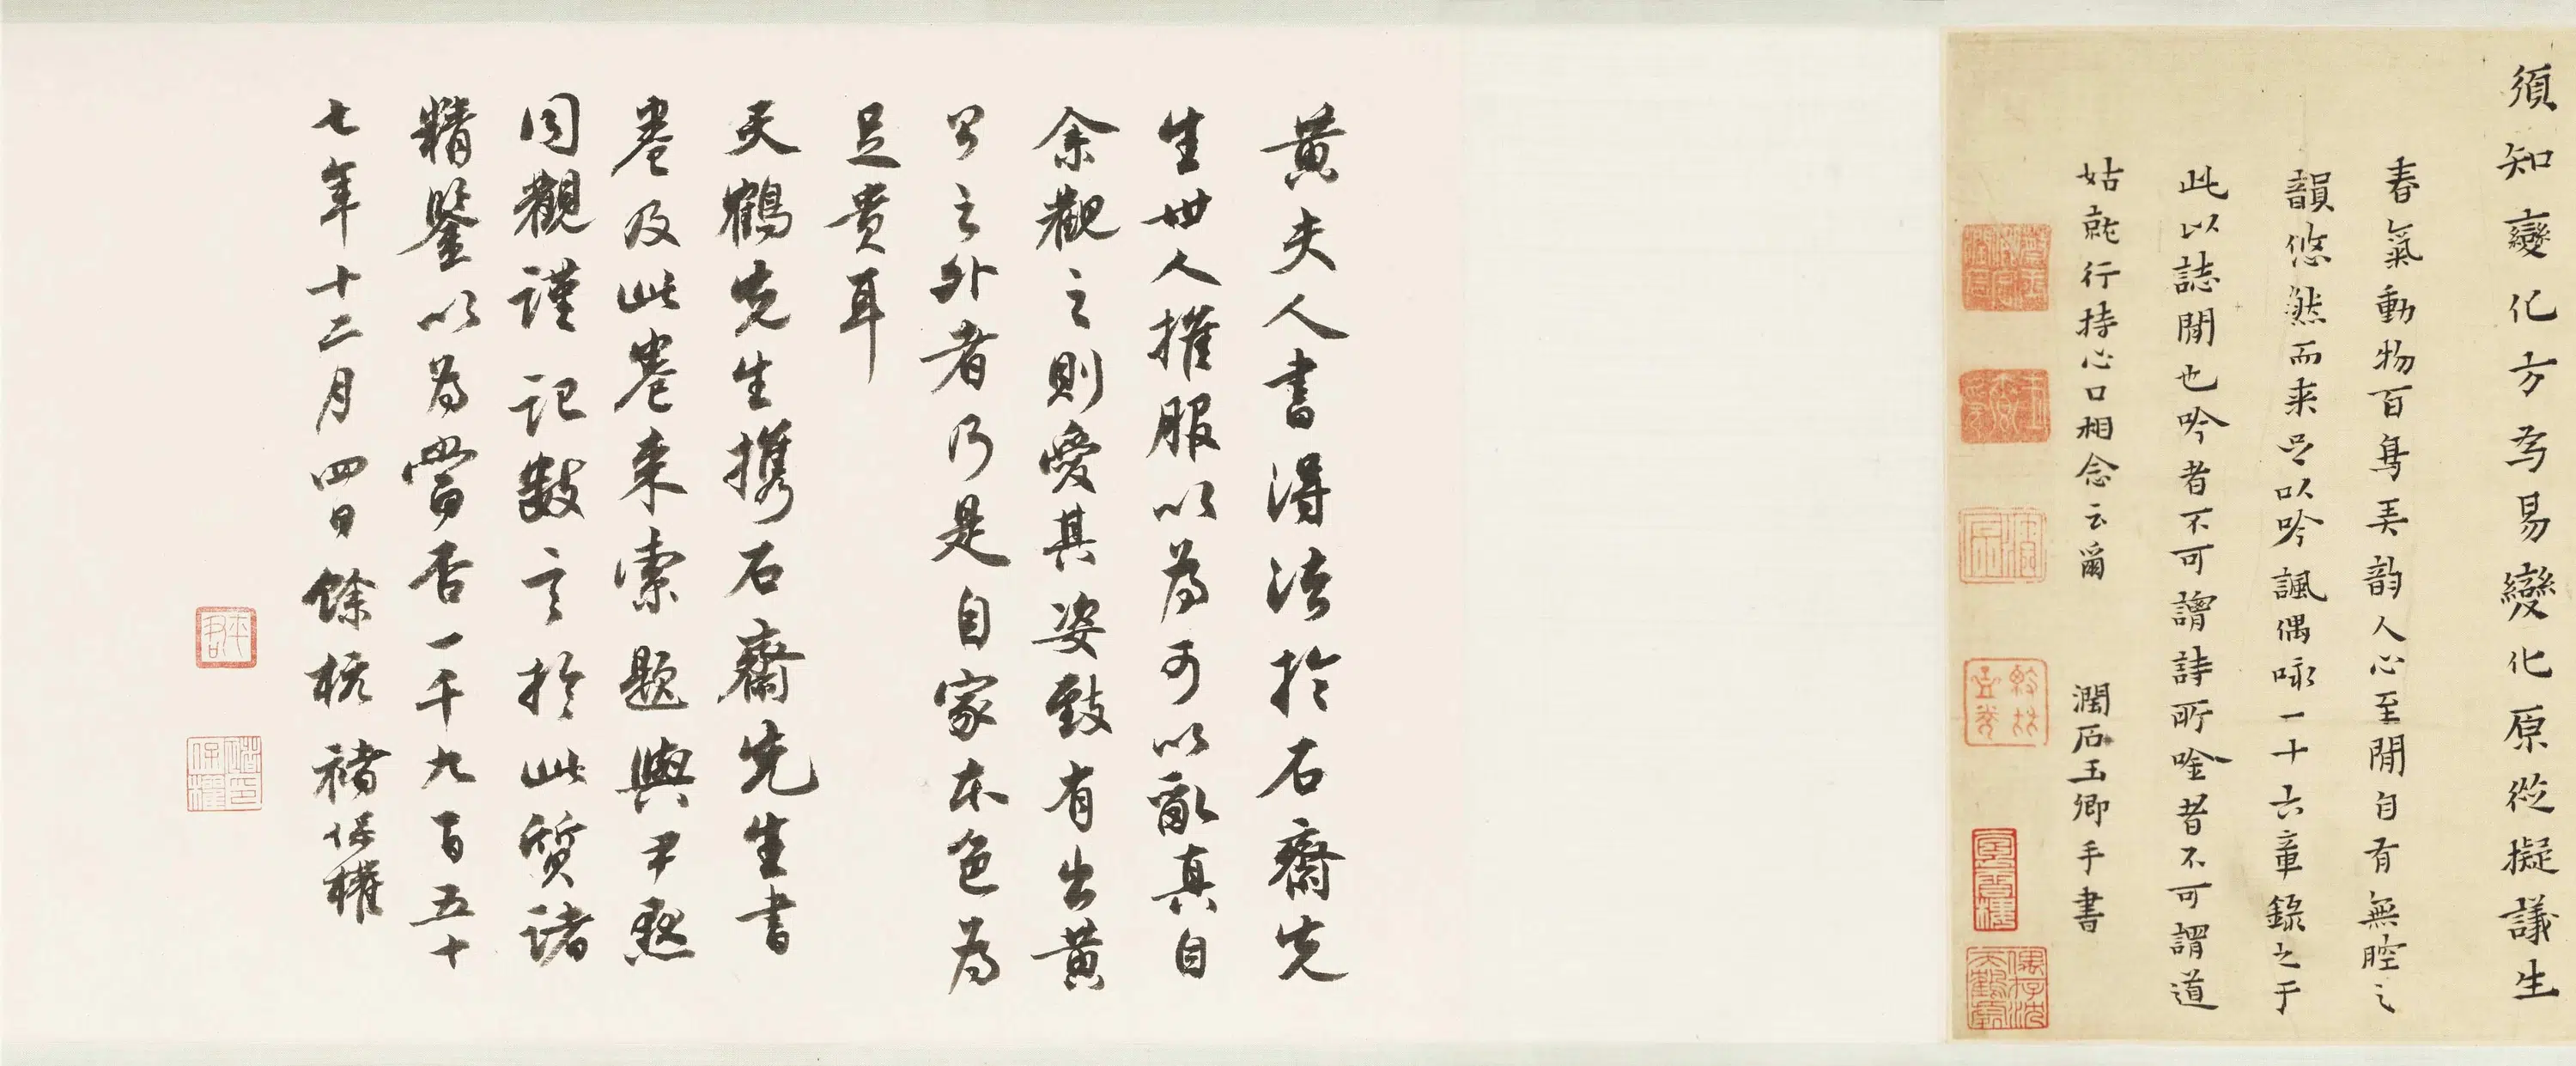 須知變化方為易變化原從擬議生
春氣動物百鳥弄韵人心至閒自有無腔之
韻悠然而来足以吟諷偶咏一十六章錄之于
此以誌閒也吟者不可謂詩所唫者不可謂道
姑就行持心口相念云爾　潤石玉卿手書
黃夫人書得法於石齋先
生世人摧服以為可以亂真自
余觀之則愛其姿致有出黃
公之外者乃是自家本色為
足貴耳
天鶴先生攜石齋先生書
卷及此卷来索題與尹默
同觀謹記數言於此質諸
精鑒以為當否一千九百五十
七年十二月四日餘杭褚保權
褚保權印